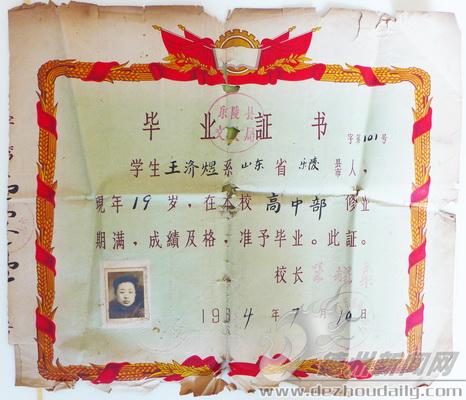 毕业証书
乐陵县
字第101号
学生王济煜系山东省乐陵县市人，
現年19岁，在本校高中部修业
期满，成績及格，准予毕业。此証。
校长
1964年7月10日
德州新闻网
www.dezhoudaily.com